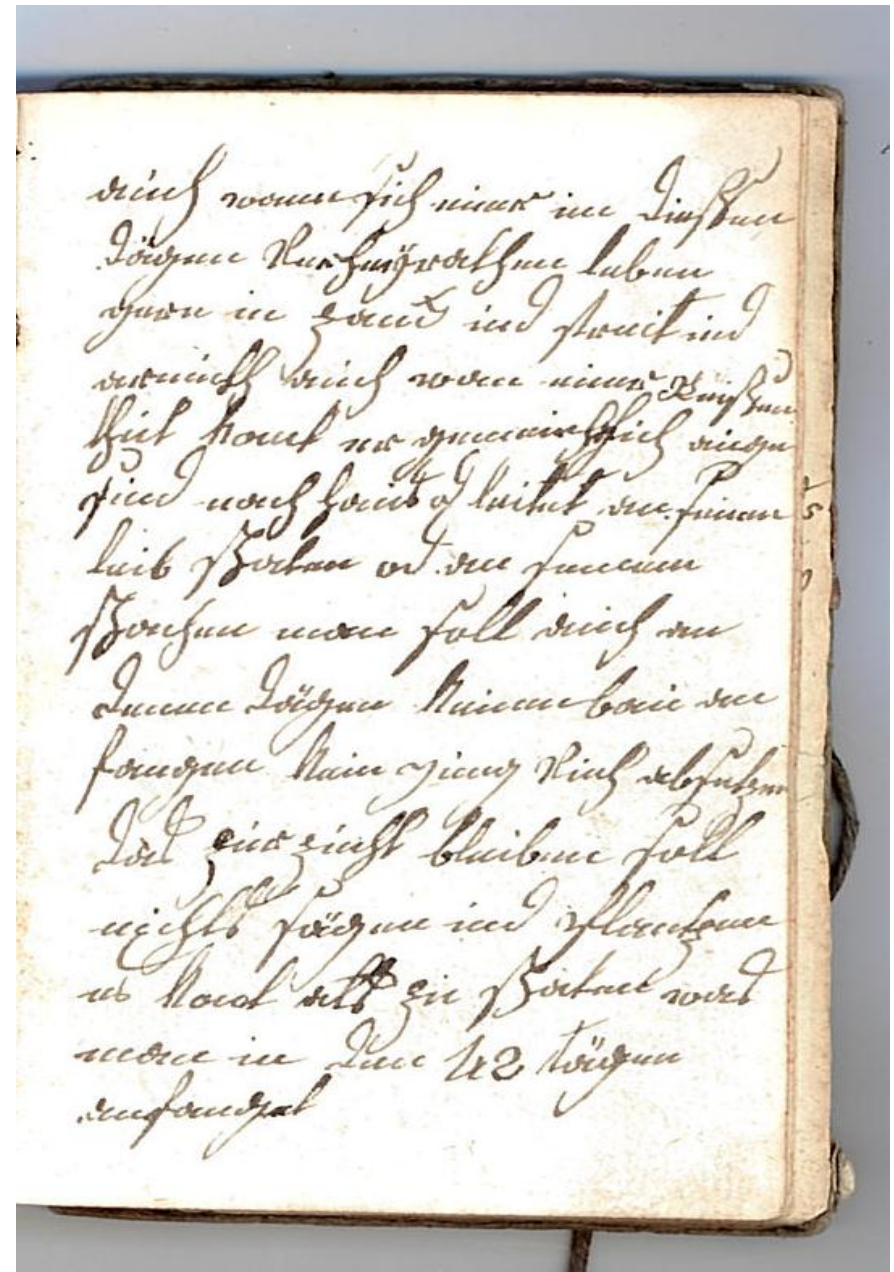 auch wann sich einer in diesßen
Tägen Verheÿrathen leben
gern in Zanck und streit und
armuth auch wan einer Reißen
thut komt er gemeinglich unge
sund nach hauß od leitet an seinen
leib schaten od an seinen
sachen man soll auch an
denen Tägen keinen bau an
fangen kein jung Vieh absetzen
das zur zucht bleiben soll
nichts säÿen und Plantzen
es komt alß zu schaten was
man in den 42 tägen
anfanget